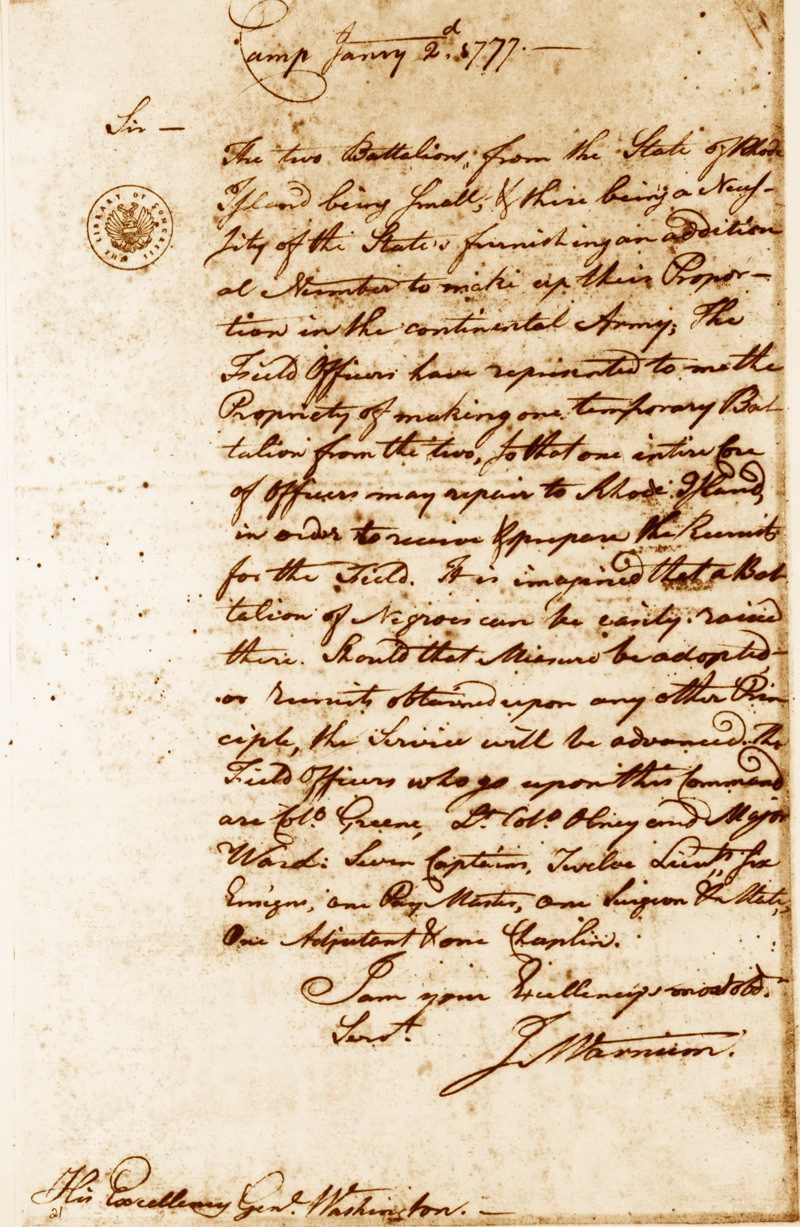 Camp Janry 2.d 1777. —
Sir —
The two Battalions, from the State of Rhode
Island being small, & there being a Neces-
sity of the State's furnishing an addition
al Number to make up their Propor—
tion in the continental Army; The
Field Officers have represented to me the
Propriety of making one temporary Bat
talion from the two, so that one intire Core
of Officers may repair to Rhode Island,
in order to receive & prepare the Recruits
for the Field. It is imagined that a Bat
talion of Negroes can be easily raised
there. Should that Measure be adopted—
or recruits obtained upon any other Prin
ciple, the Service will be advanced. The
Field Officers who go upon this Command
are Colo. Greene, Lt. Colo. Olney and Major
Ward: Seven Captains, Twelve Lieuts, six
Ensigns, one Pay Master, one Surgeon & Mate,
One Adjutant & one Chaplin.
I am your Excellency's most obdt.
Servt.
J Varnum.
His Excellency Genl. Washington. —
21
THE LIBRARY OF CONGRESS